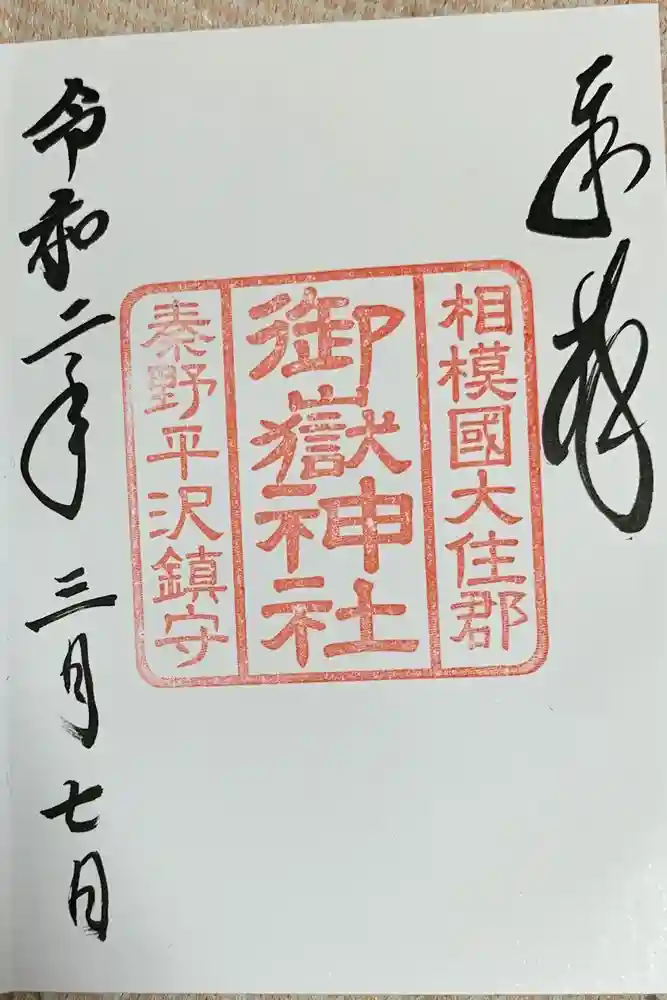 奉拝
相模國大住郡
御嶽神社
秦野平沢鎮守
令和二年 三月 七日